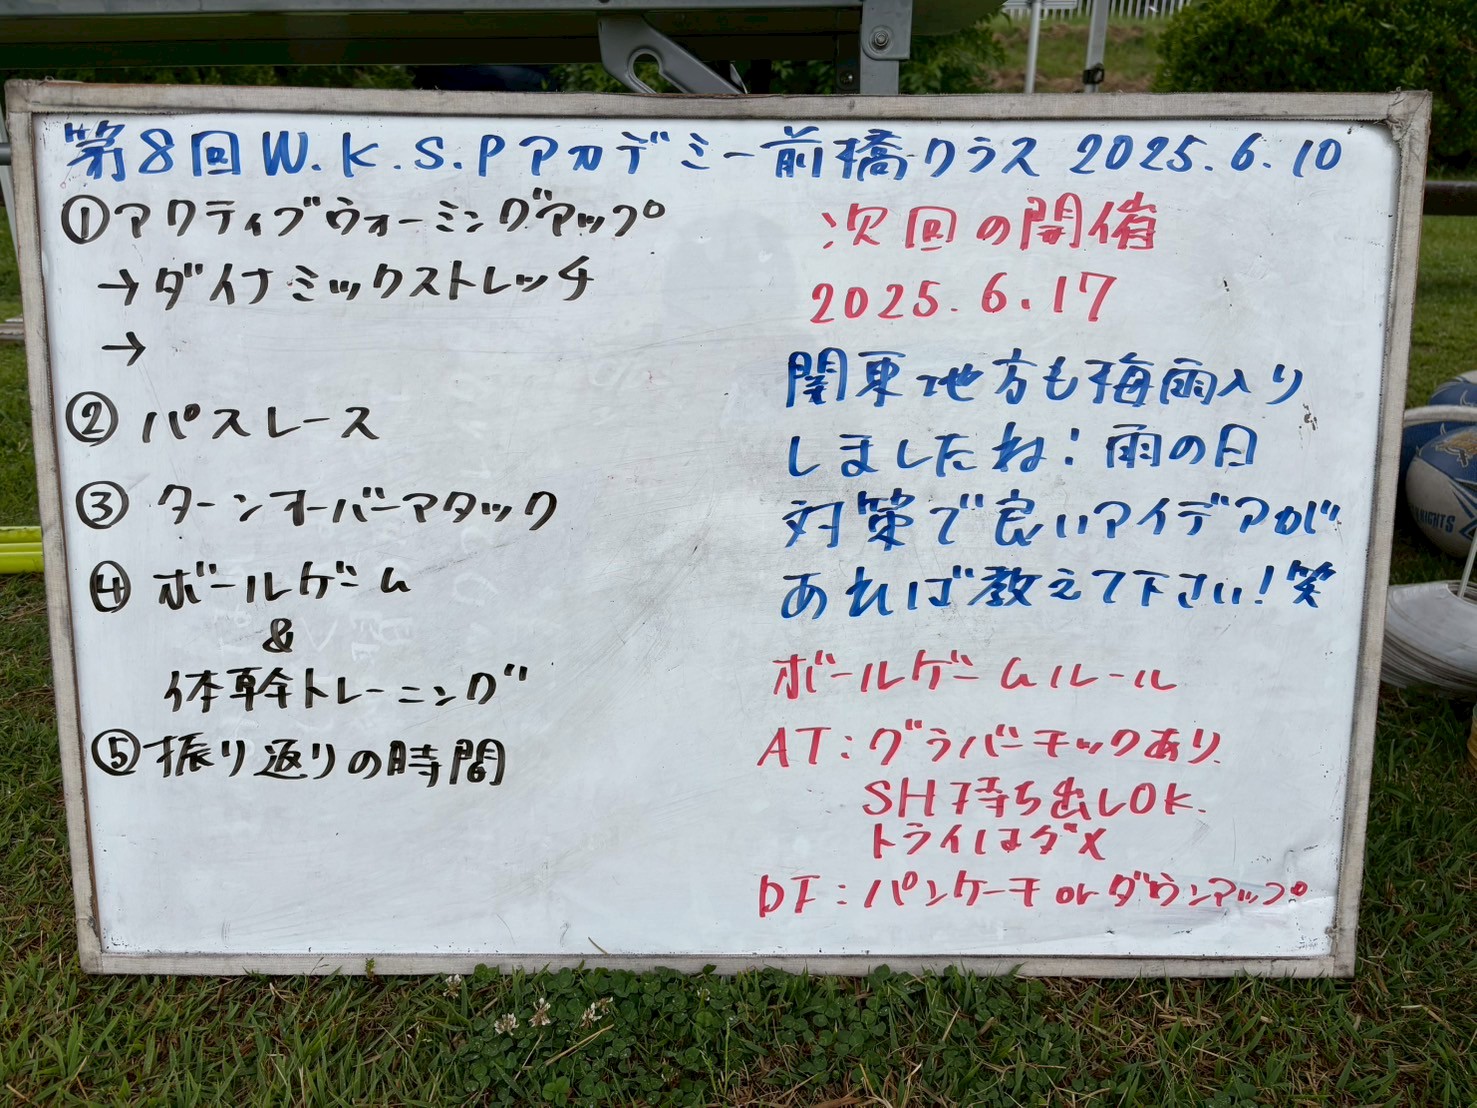 第8回W.K.S.Pアカデミー前橋クラス 2025.6.10
①アクティブウォーミングアップ
→ダイナミックストレッチ
→
② パスレース
③ ターンオーバーアタック
④ ボールゲーム
&
体幹トレーニング
⑤振り返りの時間
次回の開催
2025.6.17
関東地方も梅雨入り
しましたね！雨の日
対策で良いアイデアが
あれば教えて下さい！笑
ボールゲームルール
AT：グラバーキックあり
SH持ち出しOK.
トライはダメ
DF：パンケーキorダウンアップ
KNIGHTS